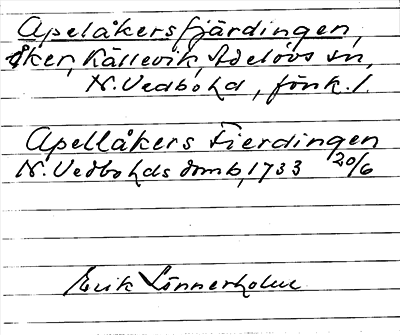 Apelåkersfjärdingen,
åker, Källevik, Adelövs sn,
N. Vedbo hd, Jönk. l.
Apellåkers Fierdingen
N. Vedbo hds domb, 1733 20/6
Erik Lönnerholm